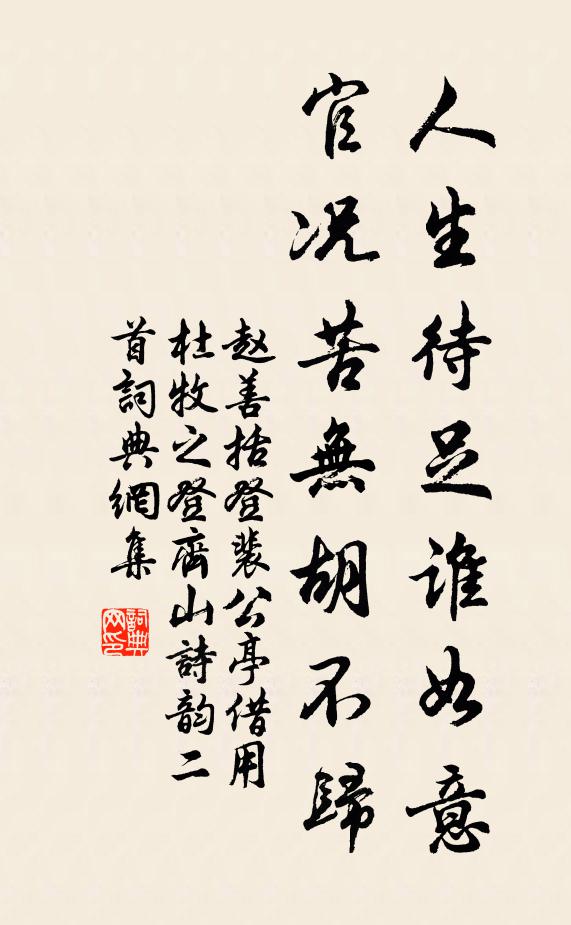 人生待足谁如意
官况苦無胡不歸
赵善括登裴公亭借用
杜牧之登齊山詩韵二
首詞典網集
詞典
网印